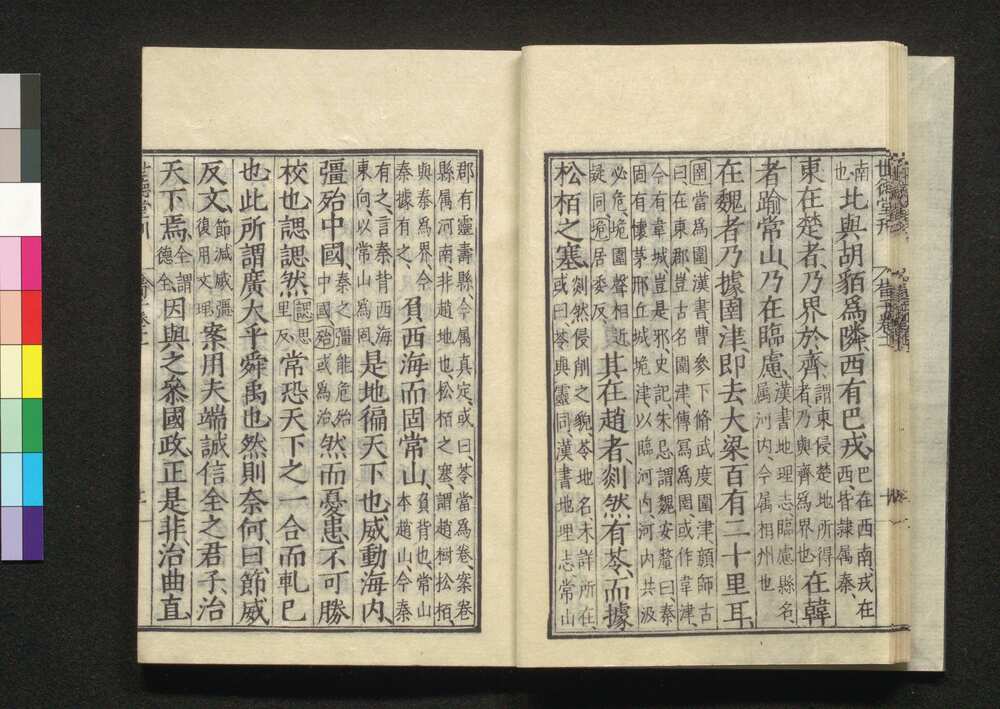 世德堂刊
南也北與胡貉爲隣西有巴戎巴在西南戎在西皆隸属秦
東在楚者乃界於齊謂東侵楚地所得者乃與齊爲界也在韓
者踰常山乃在臨慮漢書地理志臨慮縣名属河内今属相州也
在魏者乃據圉津即去大梁百有二十里耳
圉當爲圍漢書曹參下脩武度圍津顔師古
曰在東郡豈古名圍津傳冩爲圉或作韋津
今有韋城豈是邪史記朱忌謂魏安釐曰秦
固有懷茅邢丘城垝津以臨河内河内共汲
必危垝圍聲相近疑同垝居委反其在趙者剡然有苓而據
松栢之塞剡然侵削之貌苓地名未詳所在或曰苓與靈同漢書地理志常山
郡有靈壽縣今属真定或曰苓當爲卷案卷
縣属河南非趙地也松栢之塞謂趙樹松栢
與秦爲界今秦據有之負西海而固常山負背也常山本趙山今秦
有之言秦背西海東向以常山爲固是地徧天下也威動海内
彊殆中國秦之彊能危殆中國殆或爲治然而憂患不可勝
校也諰諰然諰思里反常恐天下之一合而軋已
也此所謂廣大乎舜禹也然則奈何曰節威
反文節減威彊復用文理案用夫端誠信全之君子治
天下焉全謂德全因與之參國政正是非治曲直